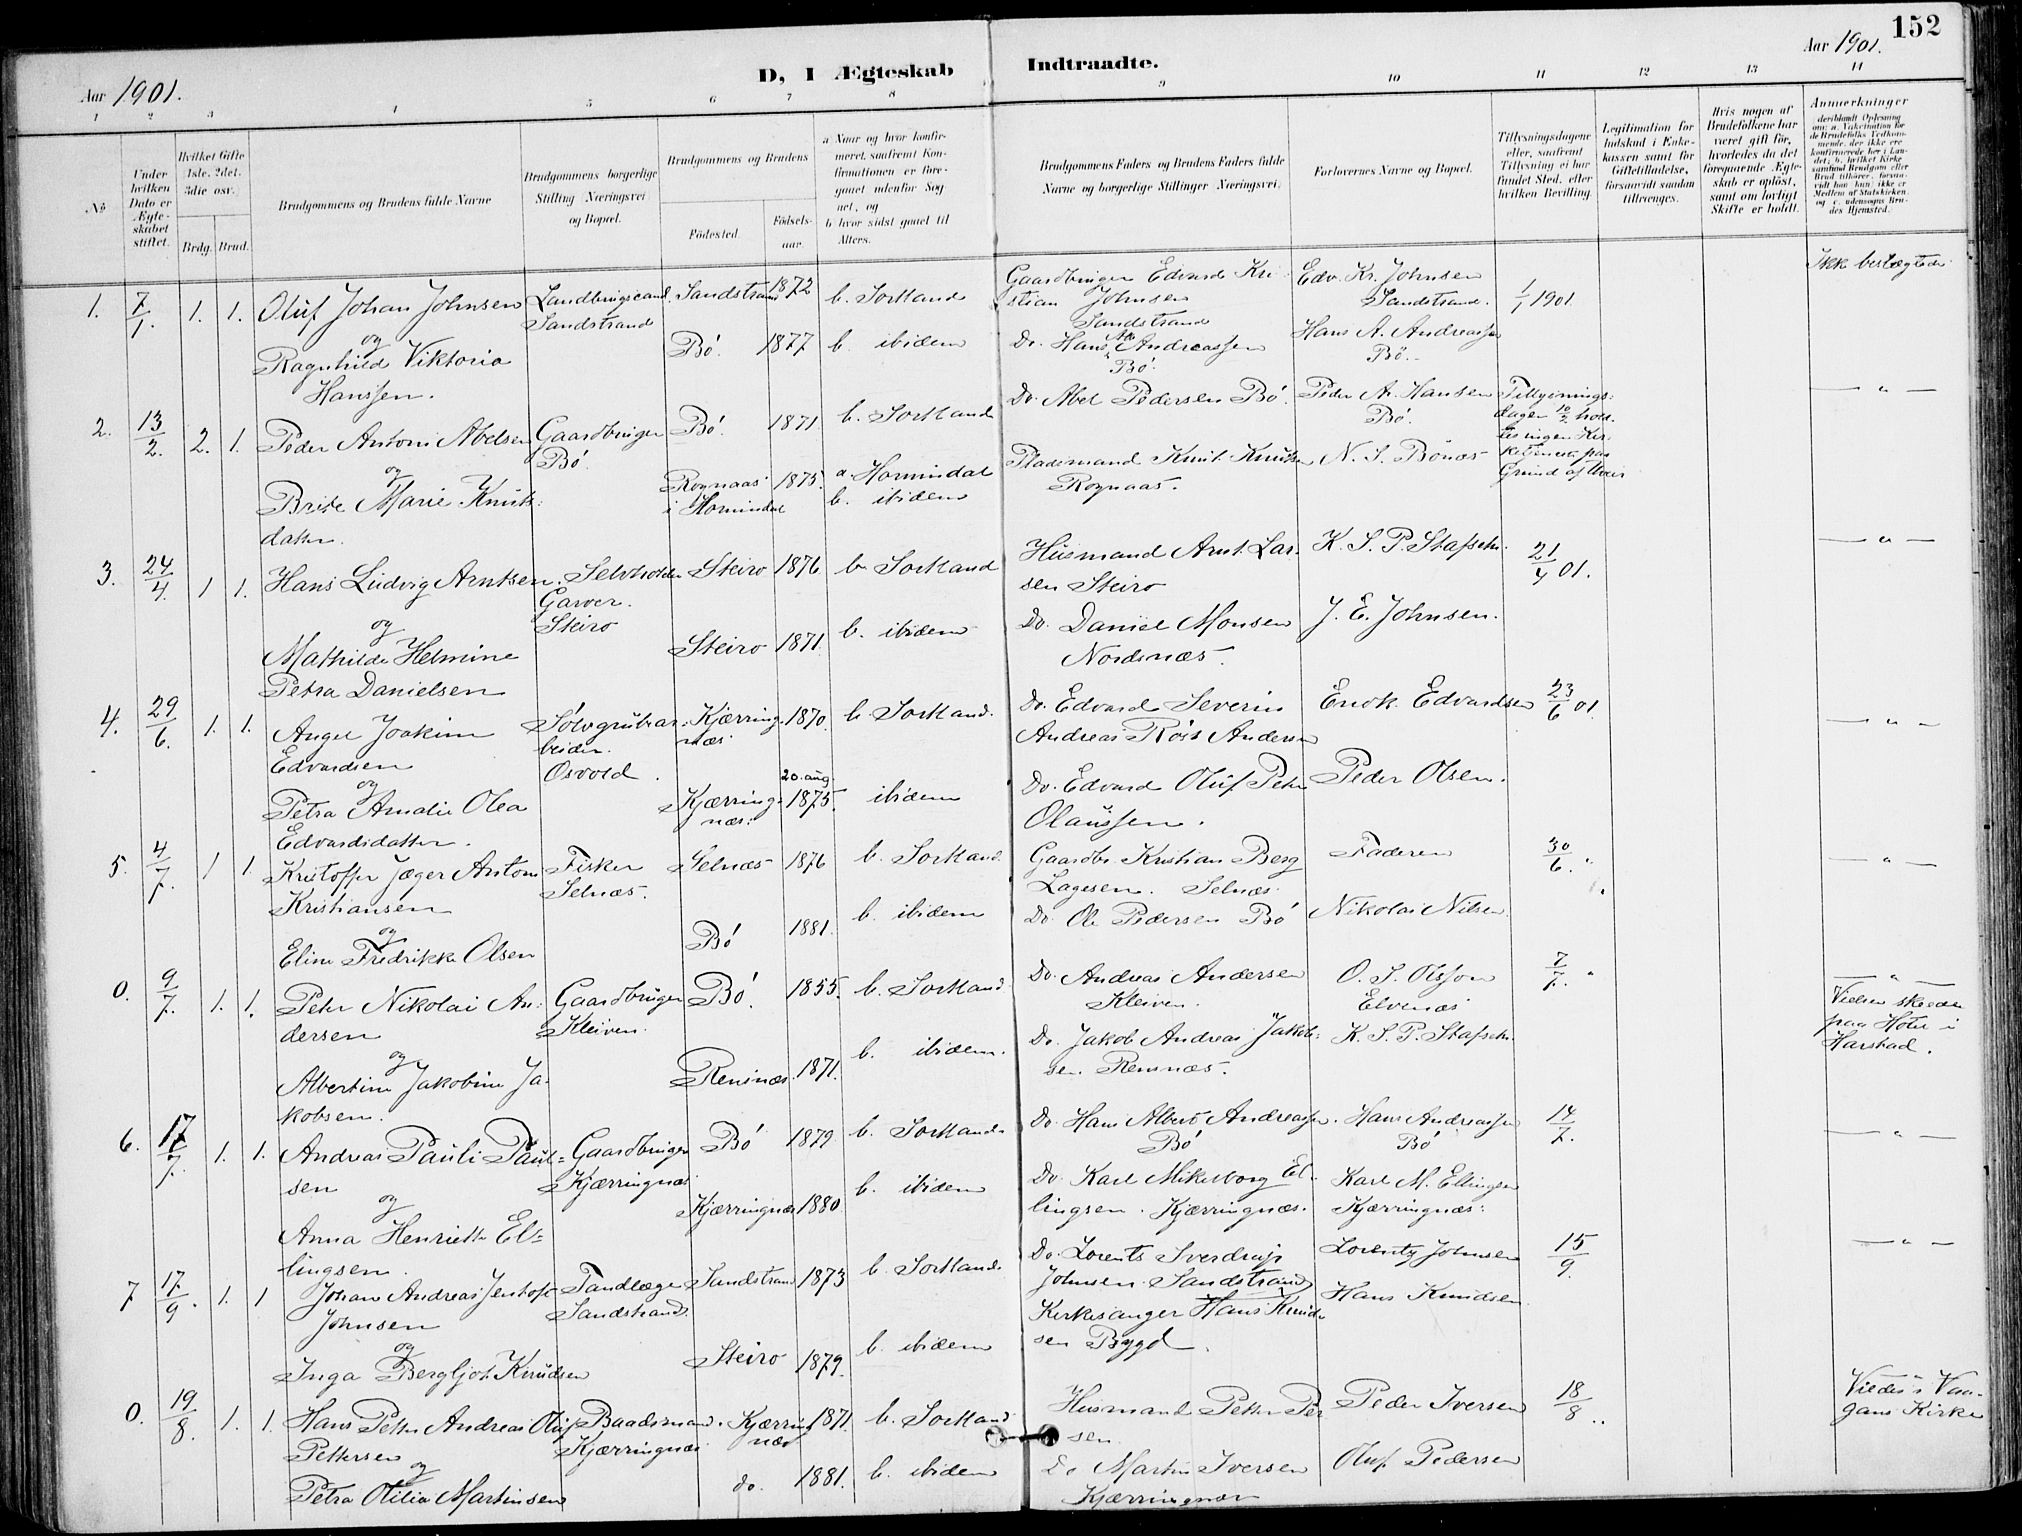 152
Aar 1901.
D, I Ægteskab Indtraadte.
Aar 1901.
1 2 3 4 5 6 7 8 9 10 11 12 13 14
No
Under hvilken Dato er Ægteskabet stiftet.
Hvilket Gifte 1ste, 2det, 3die osv.
Brdg. Brud.
Brudgommens og Brudens fulde Navne
Brudgommens borgerlige Stilling Næringsvei og Bopæl.
Brudgommens og Brudens
Födested. Födselsaar.
a Naar og hvor konfirmeret, saafremt Konfirmationen er foregaaet udenfor Sognet, og
b hvor sidst gaaet til Alters.
Brudgommens Faders og Brudens Faders fulde Navne og borgerlige Stillinger Næringsvei.
Forlovernes Navne og Bopæl.
Tillysningsdagene eller, saafremt Tillysning ei har fundet Sted, efter hvilken Bevilling.
Legitimation for Indskud i Enkekassen samt for Giftetilladelse, forsaavidt saadan tiltrænges.
Hvis nogen af Brudefolkene har været gift för, hvorledes da det foregaaende Ægteskab er oplöst, samt om lovligt Skifte er holdt.
Anmerkninger
1. 7/1. 1. 1. Oluf Johan Johnsen Landbrugscand. Sandstrand 1872 b. Sortland Gaardbruger Edvard Kri- Edv. Kr. Johnsen 1/1 1901. Ikke beslægtede
Sandstrand stian Johnsen Sandstrand.
og Sandstrand
Ragnhild Viktoria Bö. 1877 b. ibidem Do. Hans A. Andreassen Hans A. Andreassen
Hanssen. Bö. Bö.
2. 13/2. 2. 1. Peder Antoni Abelsen Gaardbruger Bö. 1871 b. Sortland Do. Abel Pedersen Bö. Peder A. Hansen Tillysnings: — " —
Bö. Bö. dagen 10/2 hold-
og tes ingen Kir-
Brite Marie Knuts: Rognaas 1875. a. Hornindal Pladsmand Knut Knutsen N. S. Bönæs ketjeneste paa
datter. i Hornindal b. ibidem Rognaas. Grund af Uveir
3. 24/4. 1 1. Hans Ludvig Arntsen Selvholden Steiro 1876 b. Sortland Husmand Arnt Lar- K. S. P. 21/4 01. — " —
Garver. sen Steiro
og Steiro
Mathilde Helmine Steiro 1871 b. ibidem Do. Daniel Monsen J. E. Johnsen.
Petra Danielsen Nordnæs.
4. 29/6. 1. 1. Angel Joakim Sölvgrubear- Kjærring- 1870 b. Sortland. Do. Edvard Severin Enok Edvardsen 23/6 01. — " —
Edvardsen beider. næs Andreas Röst Andersen
og Osvold
Petra Amalie Olea Kjærring- 20. aug. 1875. ibidem Do. Edvard Oluf Peter Peder Olsen.
Edvardsdatter. næs. Olaussen.
5. 4/7. 1 1. Kristoffer Jæger Antoni Fisker Selnæs 1876 b. Sortland. Gaardbr. Kristian Berg Faderen 30/6. " — " —
Kristiansen Selnæs. Lagesen. Selnæs.
og
Eline Fredrikke Olsen Bö 1881. b. ibidem Do. Ole Pedersen Bö Nikolai Nilsen.
0. 9/7. 1. 1. Peter Nikolai An- Gaardbruger Bö. 1855. b. Sortland. Do. Andreas Andersen O. S. Olsson 7/7. " — " —
dersen Kleiven. Kleiven. Elvenæs Vielsen skeede
og paa Hotel i
Albertine Jakobine Ja- Rensnæs. 1871. b. ibidem. Do. Jakob Andreas Jakob- K. S. P. Harstad.
kobsen. sen. Rensnæs.
6. 17/7. 1. 1. Andreas Pauli Paul- Gaardbruger Bö 1879 b. Sortland. Do. Hans Albert Andreassen. Hans Andreassen 14/7. — " —
sen Kjærringnæs Bö Bö
og
Anna Henriette El- Kjærringnæs 1880. b. ibidem Do. Karl Mikelborg El- Karl M. Ellingsen
lingsen. lingsen. Kjærringnæs. Kjærringnæs.
7 17/9. 1. 1 Johan Andreas Jentoft Tandlæge Sandstrand 1873 b. Sortland. Do. Lorents Sverdrup Lorentz Johnsen 15/9. — " —
Johnsen Sandstrand. Johnsen. Sandstrand
og
Inga Bergljot Knudsen Steiro 1879. b. ibidem Kirkesanger Hans Knud- Hans Knudsen
sen Bygd.
0. 19/8. 1. 1. Hans Petter Andreas Oluf Baadsmand. Kjærring- 1871. b. Sortland Husmand Petter Per Peder Iversen 18/8 .. Viedes i Vaa-
Pettersen Kjærringnæs. næs sen. gans Kirke
og
Petra Otilia Martinsen do. 1881. b. ibidem Do Martin Iversen Oluf Pedersen
Kjærringnæs